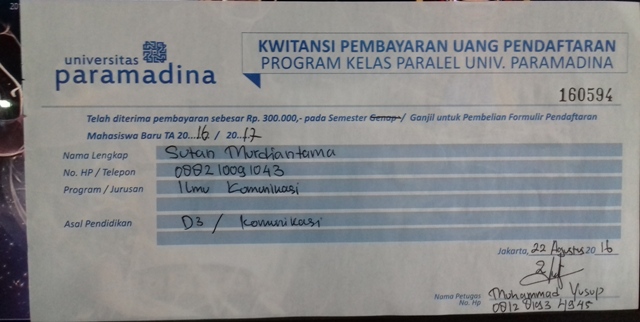 universitas
paramadina
KWITANSI PEMBAYARAN UANG PENDAFTARAN
PROGRAM KELAS PARALEL UNIV. PARAMADINA
160594
Telah diterima pembayaran sebesar Rp. 300.000,- pada Semester Genap / Ganjil untuk Pembelian Formulir Pendaftaran
Mahasiswa Baru TA 20...16 / 20...17
Nama Lengkap Sutan Murdiantama
No. HP / Telepon 088210091043
Program / Jurusan Ilmu Komunikasi
Asal Pendidikan D3 / Komunikasi
Jakarta, 22 Agustus 20 16
Nama Petugas Muhammad Yusup
No. Hp 0812 8193 4945